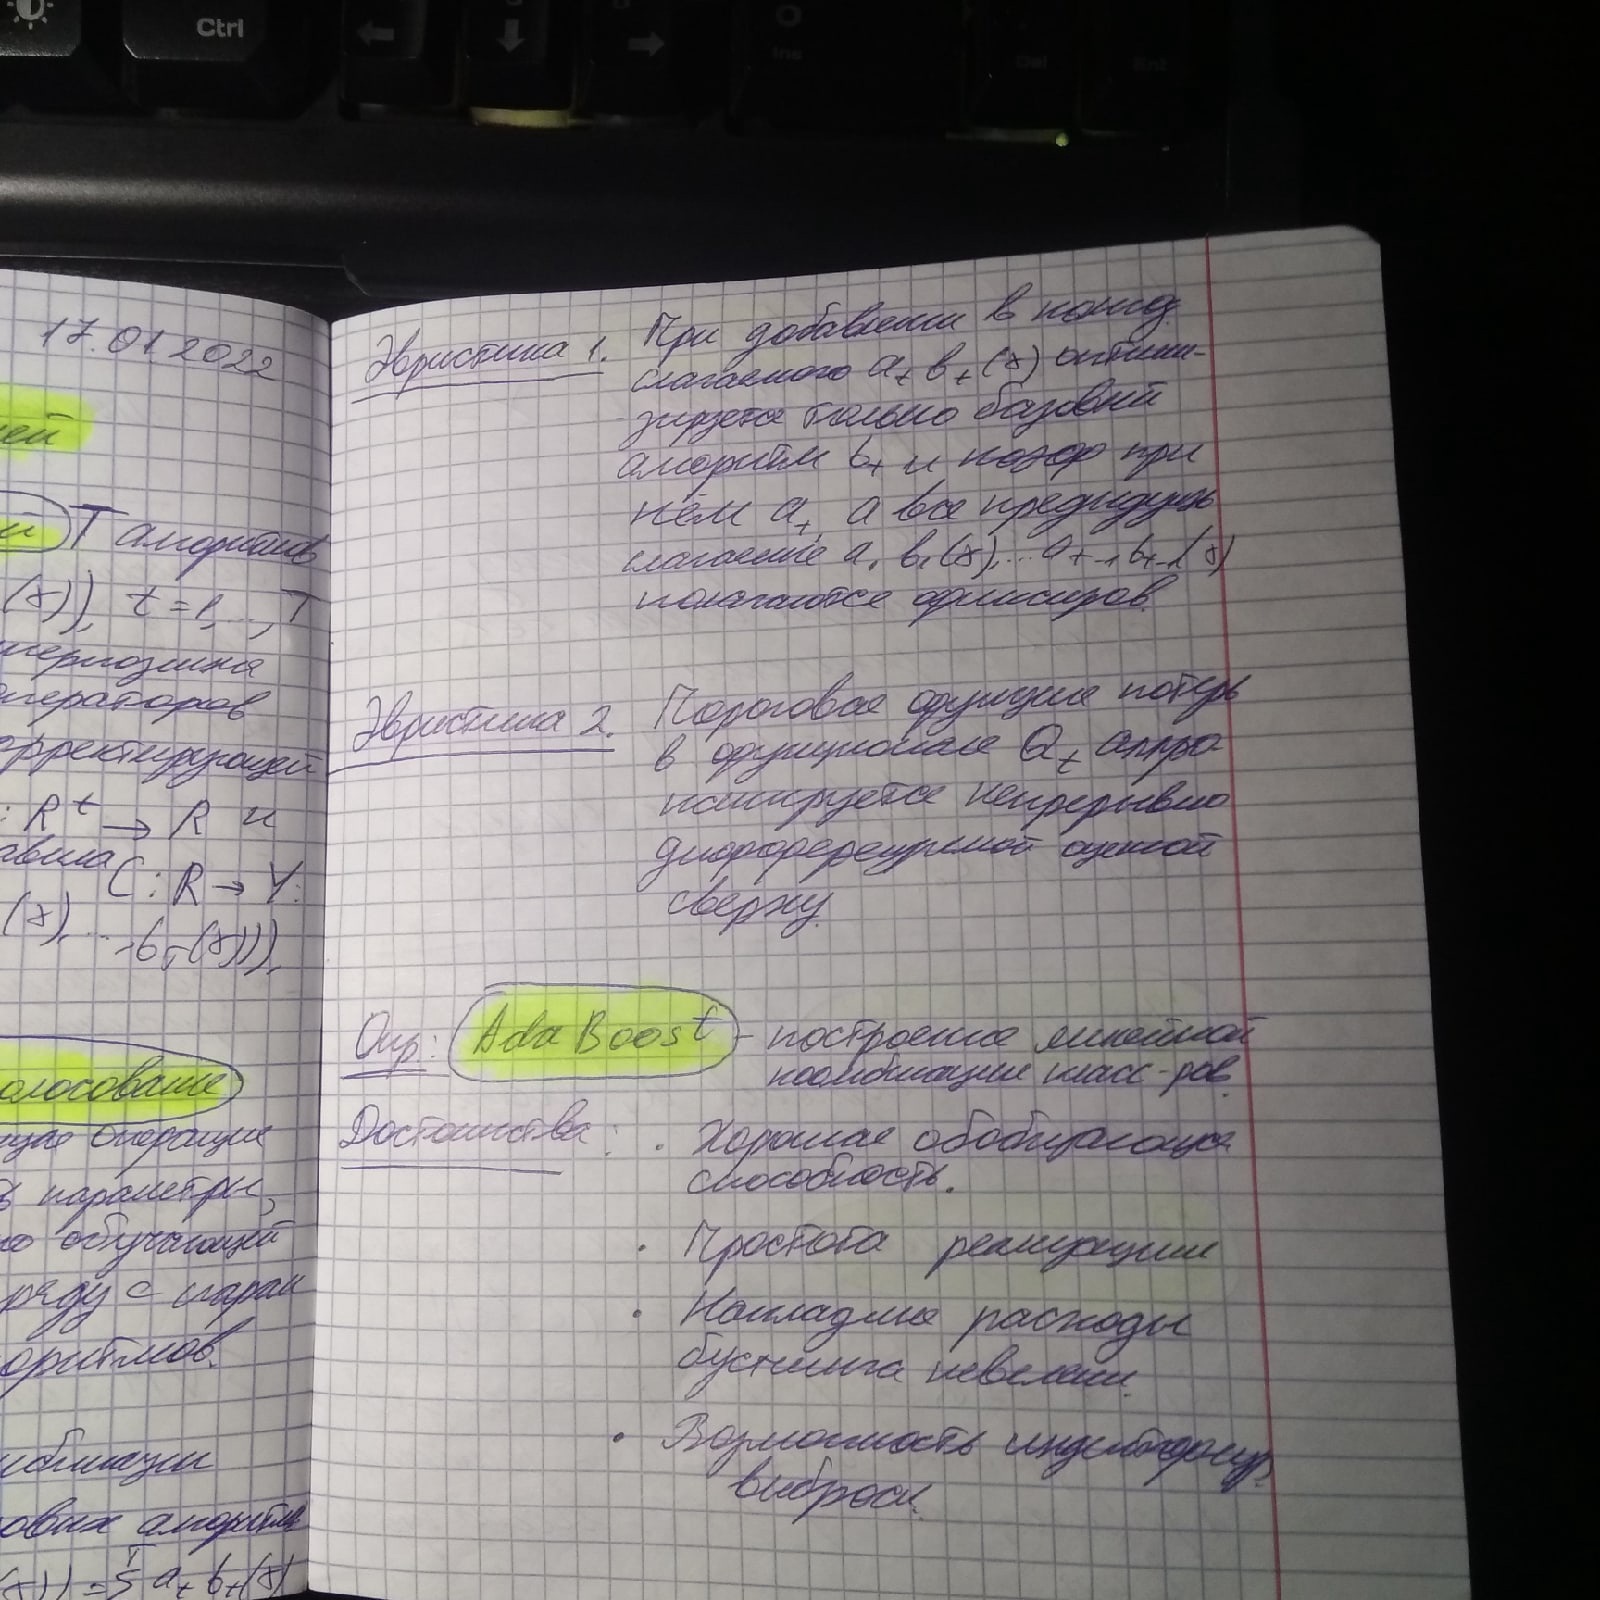 Ctrl
Ins
Del
17.01.2022
ей
й T алгоритмов
(x)), t = 1, ..., T
суперпозиция
операторов
корректирующей
: R^t → R и
C : R → Y:
(x), ... b_T(x))),
олосование
щую операцию
параметры,
по обучающей
ряду с парам
оритмов.
омбинации
овых алгоритм
(x)) = Σ a_t b_t(x)
T
Эвристика 1. При добавлении в композ.
слагаемого a_t b_t(x) оптими-
зируется только базовый
алгоритм b_t и коэф при
нём a_t, а все предыдущ
слагаемые a_1 b_1(x), ... a_t-1 b_t-1(x)
полагаются фиксиров.
Эвристика 2. Пороговая функция потерь
в функционале Q_t аппро
ксимируется непрерывно
дифференцируемой оценкой
сверху.
Опр: AdaBoost - построение линейной
комбинации класс-ров.
Достоинства: • Хорошая обобщающая
способность.
• Простота реализации
• Накладные расходы
бустинга невелики.
• Возможность идентифицир.
выбросы.